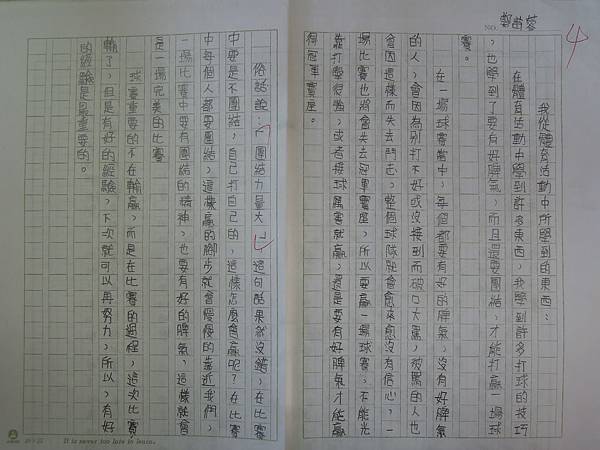 NO.
4
我從體育活動中所學到的東西:
在體育活動中學到許多東西,我學到許多打球的技巧
,也學到了要有好脾氣,而且還要團結,才能打贏一場球
賽。
在一場球賽當中,每個都要有好的脾氣,沒有好脾氣
的人,會因為別打不好或沒接到而破口大罵,被罵的人也
會因這樣而失去鬥志,整個球隊就會愈來愈沒有信心,一
場比賽也將會失去冠軍寶座,所以要贏一場球賽,不能光
靠打要很強,或者接球厲害就贏,還是要有好脾氣才能贏
得冠軍寶座。
俗話說:「團結力量大」這句話果然沒錯,在比賽
中要是不團結,自己打自己的,這樣怎麼會贏呢?在比賽
中每個人都要團結,這樣贏的腳步就會慢慢的靠近我們,
一場比賽中要有團結的精神,也要有好的脾氣,這樣就會
是一場完美的比賽
球賽重要的不在輸贏,而是在比賽的過程,這次比賽
輸了,但是有好的經驗,下次就可以再努力,所以,有好
的經驗是最重要的。
It is never too late to learn.